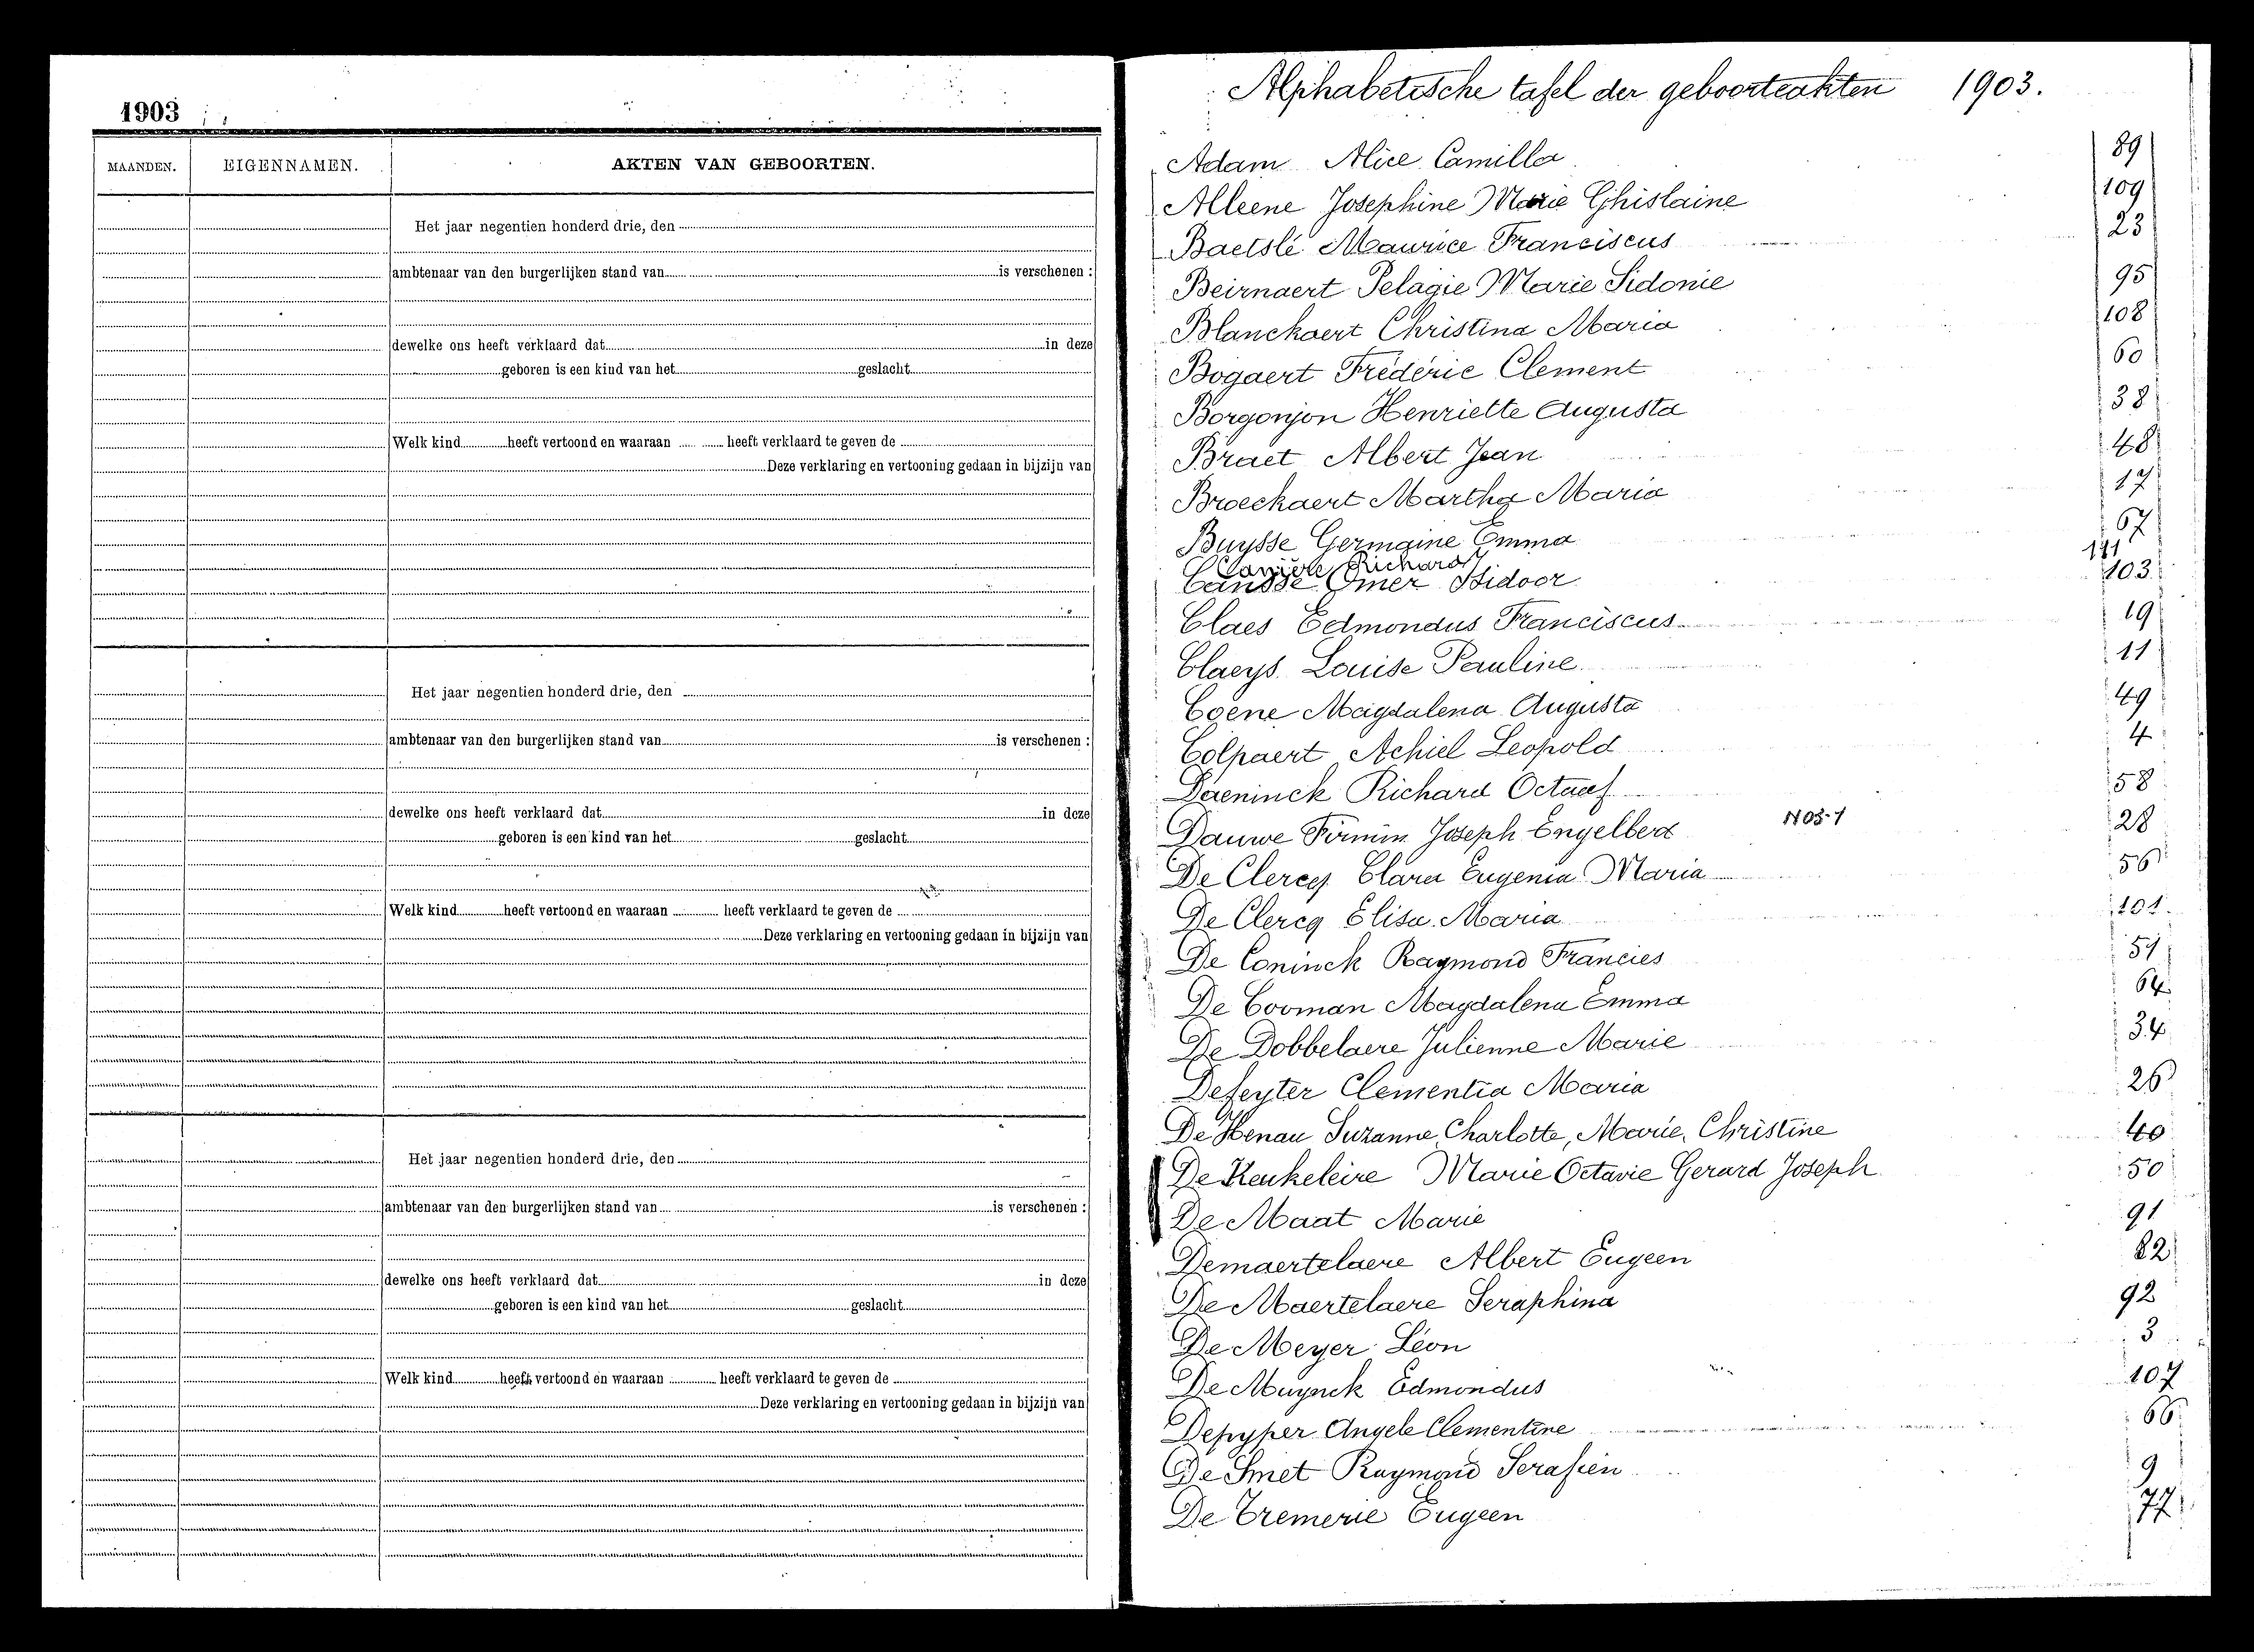 1903
MAANDEN. EIGENNAMEN. AKTEN VAN GEBOORTEN.
Het jaar negentien honderd drie, den
ambtenaar van den burgerlijken stand van is verschenen :
dewelke ons heeft verklaard dat in deze
geboren is een kind van het geslacht
Welk kind heeft vertoond en waaraan heeft verklaard te geven de
Deze verklaring en vertooning gedaan in bijzijn van
Het jaar negentien honderd drie, den
ambtenaar van den burgerlijken stand van is verschenen :
dewelke ons heeft verklaard dat in deze
geboren is een kind van het geslacht
Welk kind heeft vertoond en waaraan heeft verklaard te geven de
Deze verklaring en vertooning gedaan in bijzijn van
Het jaar negentien honderd drie, den
ambtenaar van den burgerlijken stand van is verschenen :
dewelke ons heeft verklaard dat in deze
geboren is een kind van het geslacht
Welk kind heeft vertoond en waaraan heeft verklaard te geven de
Deze verklaring en vertooning gedaan in bijzijn van
Alphabetische tafel der geboorteakten 1903.
Adam Alice Camilla 89
Alleene Josephine Marie Ghislaine 109
Baetslé Maurice Franciscus 23
Beirnaert Pelagie Marie Sidonie 95
Blanckaert Christina Maria 108
Bogaert Frédéric Clement 60
Borgonjon Henriette Augusta 38
Braet Albert Jean 48
Broeckaert Martha Maria 17
Buysse Germaine Emma 67
Richard 111
Omer Isidoor 103
Claes Edmondus Franciscus 19
Claeys Louise Pauline 11
Coene Magdalena Augusta 49
Colpaert Achiel Leopold 4
Daeninck Richard Octaaf 58
Dauwe Firmin Joseph Engelbert 28
De Clercq Clara Eugenia Maria 56
De Clercq Elisa Maria 101
De Coninck Raymond Francies
De Cooman Magdalena Emma 64
De Dobbelaere Julienne Marie 34
Defeyter Clementia Maria 26
De Henau Suzanne Charlotte, Marie, Christine 40
De Keukeleire Marie Octavie Gerard Joseph 50
De Maat Marie 91
Demaertelaere Albert Eugeen
De Maertelaere Seraphina 92
De Meyer Léon 3
De Muynck Edmondus 107
Depyper Angele Clementine 66
De Smet Raymond Serafien 9
De Tremerie Eugeen 77